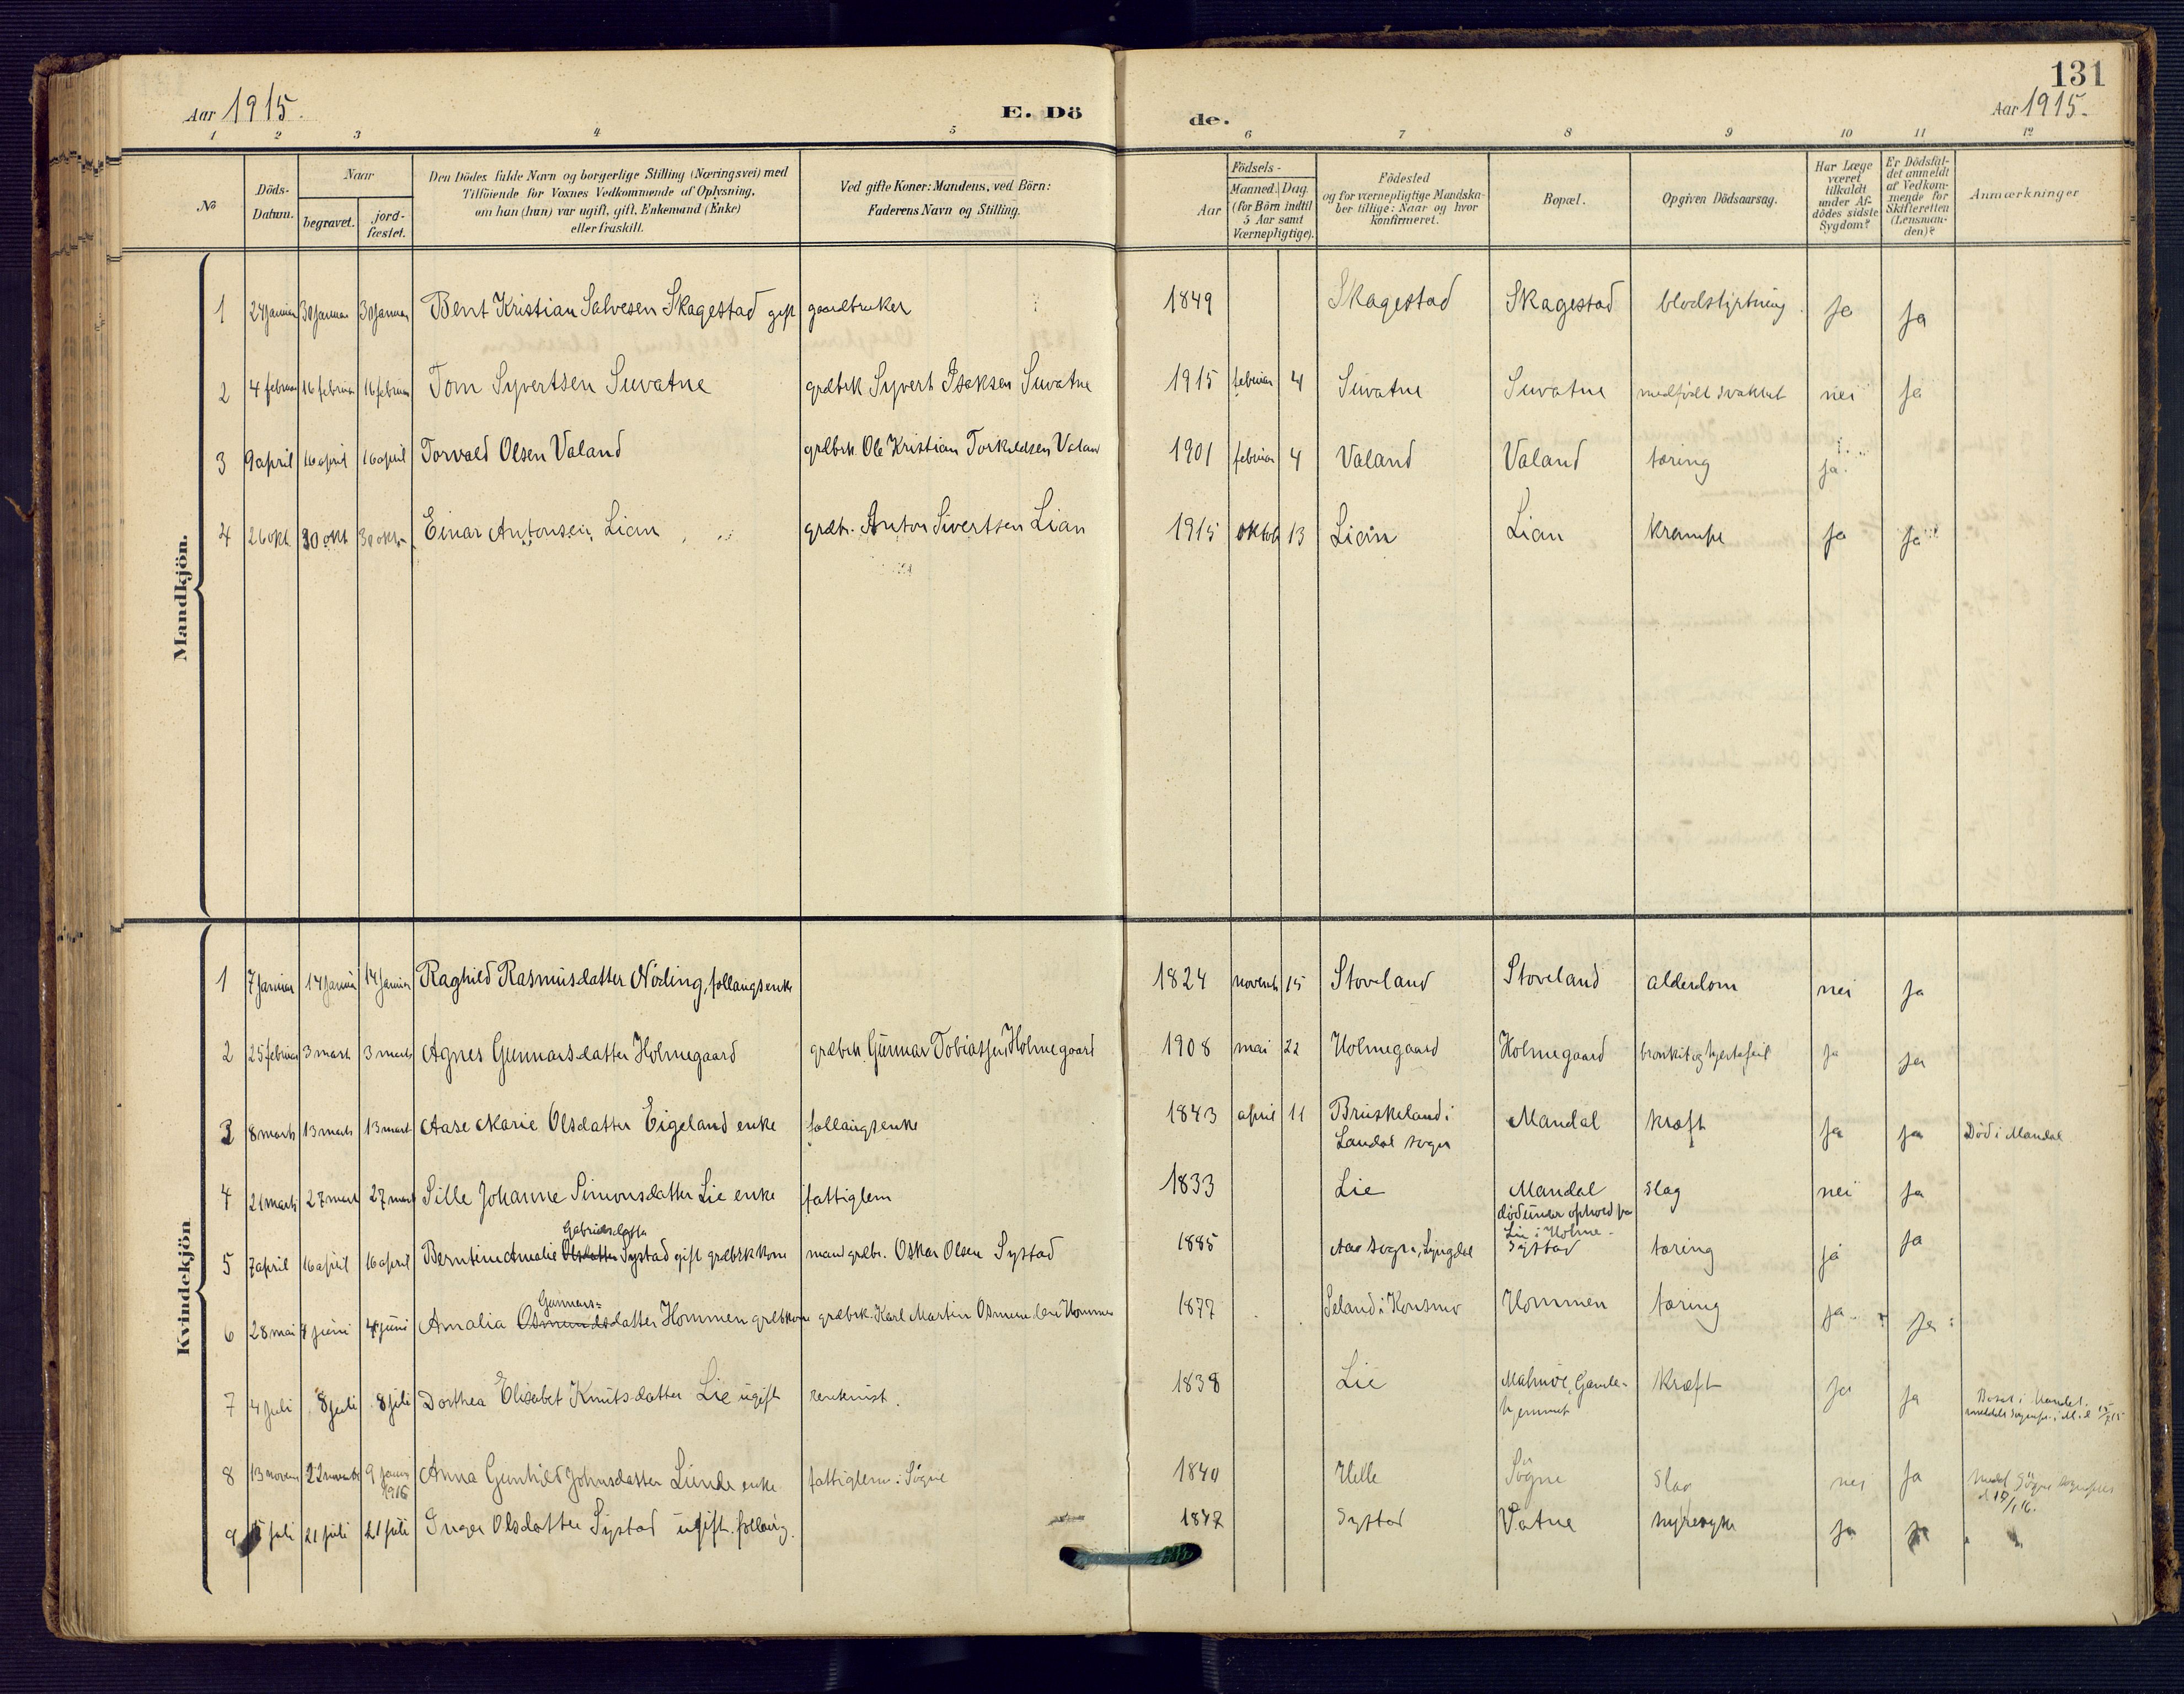 131
Aar 1915.
E. Dö
de.
Aar 1915.
1 2 3 4 5 6 7 8 9 10 11 12
No
Döds-Datum.
Naar
begravet.
jord-fæstet.
Den Dödes fulde Navn og borgerlige Stilling (Næringsvei) med
Tilföiende for Voxnes Vedkommende af Oplysning,
om han (hun) var ugift, gift, Enkemand (Enke)
eller fraskilt.
Ved gifte Koner: Mandens, ved Börn:
Faderens Navn og Stilling.
Födsels-
Aar
Maaned. Dag.
(for Börn indtil
5 Aar samt
Værnepligtige).
Födested
og for værnepligtige Mandska-
ber tillige: Naar og hvor
konfirmeret.
Bopæl.
Opgiven Dödsaarsag.
Har Læge
været
tilkaldt
under Af-
dödes sidste
Sygdom?
Er Dödsfal-
det anmeldt
af Vedkom-
mende for
Skifteretten
(Lensman-
den)?
Anmærkninger
Mandkjön.
1 24 januar 30 januar 30 januar Bent Kristian Salvesen Skagestad gift gaardbruker 1849 Skagestad Skagestad blodstyrtning ja ja
2 4 februar 16 februar 16 februar Tom Syvertsen Suvatne grdbrk Syvert Isaksen Suvatne 1915 februar 4 Suvatne Suvatne medfødt svakhet nei ja
3 9 april 16 april 16 april Torvald Olsen Valand grdbrk. Ole Kristian Torkeldsen Valand 1901 februar 4 Valand Valand tæring ja.
4 26 okt 30 okt 30 okt. Einar Antonsen Lian grdbr. Anton Sivertsen Lian 1915 oktob 13 Lian Lian krampe ja ja
Kvindekjön
1 7 januar 14 januar 14 januar Raghild Rasmusdatter Nöding, follaugsenke 1824 novemb 15 Stoveland Stoveland alderdom nei ja
2 25 februar 3 marts 3 marts Agnes Gunnarsdatter Holmegaard grdbrk. Gunnar Tobiassen Holmegaard 1908 mai 22 Holmegaard Holmegaard bronkit og hjertefeil ja ja
3 8 marts 13 marts 13 marts Aase Marie Olsdatter Eigeland enke follaugsenke 1843 april 11 Bruskeland i Mandal kræft ja ja Död i Mandal
Laudal sogn
4 21 marts 27 marts 27 marts Sille Johanne Simonsdatter Lie enke fattiglem 1833 Lie Mandal slag nei ja
död under ophold paa
Lie i Holme-
Gabrielsdatter
5 7 april 16 april 16 april Berntine Amalie Olsdatter Systad gift grdbrkkone mand grdbr. Oskar Olsen Systad 1885 Aas sogn, Lyngdal Systad tæring ja ja
Gunnars=
6 28 mai 4 juni 4 juni Amalia Osmundsdatter Hommen grdbkone grdbrk. Karl Martin Osmundsen Hommen 1877 Seland i Konsmo Hommen tæring ja ja
7 4 juli 8 juli 8 juli Dorthea Elisabet Knutsdatter Lie ugift renkunst. 1838 Lie Malmöe, Gamle- kræft ja ja Bosat i Mandal.
hjemmet
8 13 novem 22 novemb 9 januar Anna Gunhild Johnsdatter Lunde enke fattiglem i Sögne 1840 Helle Sögne slag nei ja Meddt Sögne sogneprest
1916
9 15 juli 21 juli 21 juli Inger Olsdatter Systad ugift. follaug. 1847 Systad Vatne nyresyke ja ja